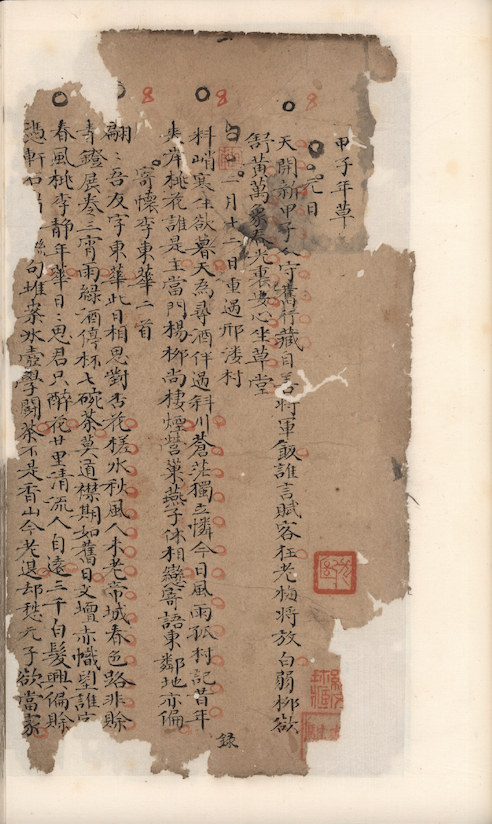 甲子年草
元日
天開新甲子 守舊行藏自善將軍飯誰言賦客狂老梅將放白弱柳欲
舒黃萬象春光裏安心坐草堂
二月十二日重過邢淒村
料峭寒生欲暮天為尋酒伴過斜川蒼茫獨立憐今日風雨孤村記昔年
夾岸桃花誰是主當門楊柳尚棲煙營巢燕子休相戀寄語東鄰地亦偏
寄懷李東華二首
翩〻吾友字東華此日相思對杏花槎水秋風人未老帝城春色路非賒
青鐙展卷三宵雨綠酒停杯七碗茶莫道襟期如舊日文壇赤幟望誰
春風桃李靜年華日〻思君只醉花廿里清流人自遠三千白髮興偏賒
憑軒 句堆寮水壺學鬪茶不是香山今老退却愁元子欲當家
錄